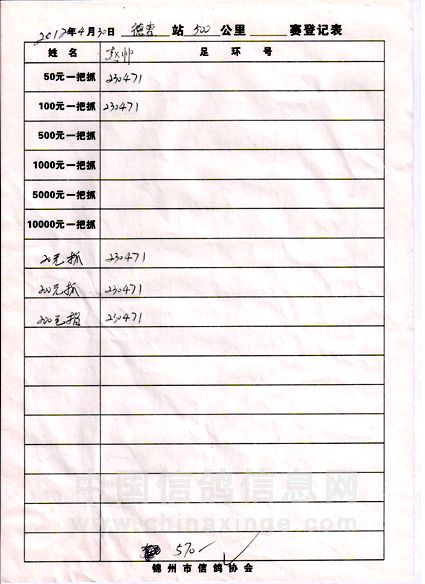 2012年4月30日 德 站 500公里 赛登记表
姓 名 足 环 号
50元一把抓 230471
100元一把抓 230471
500元一把抓
1000元一把抓
5000元一把抓
10000元一把抓
20元抓 230471
200元抓 230471
200元 230471
中国信鸽信息网
www.chinaxinge.com
570-
锦州市信鸽协会